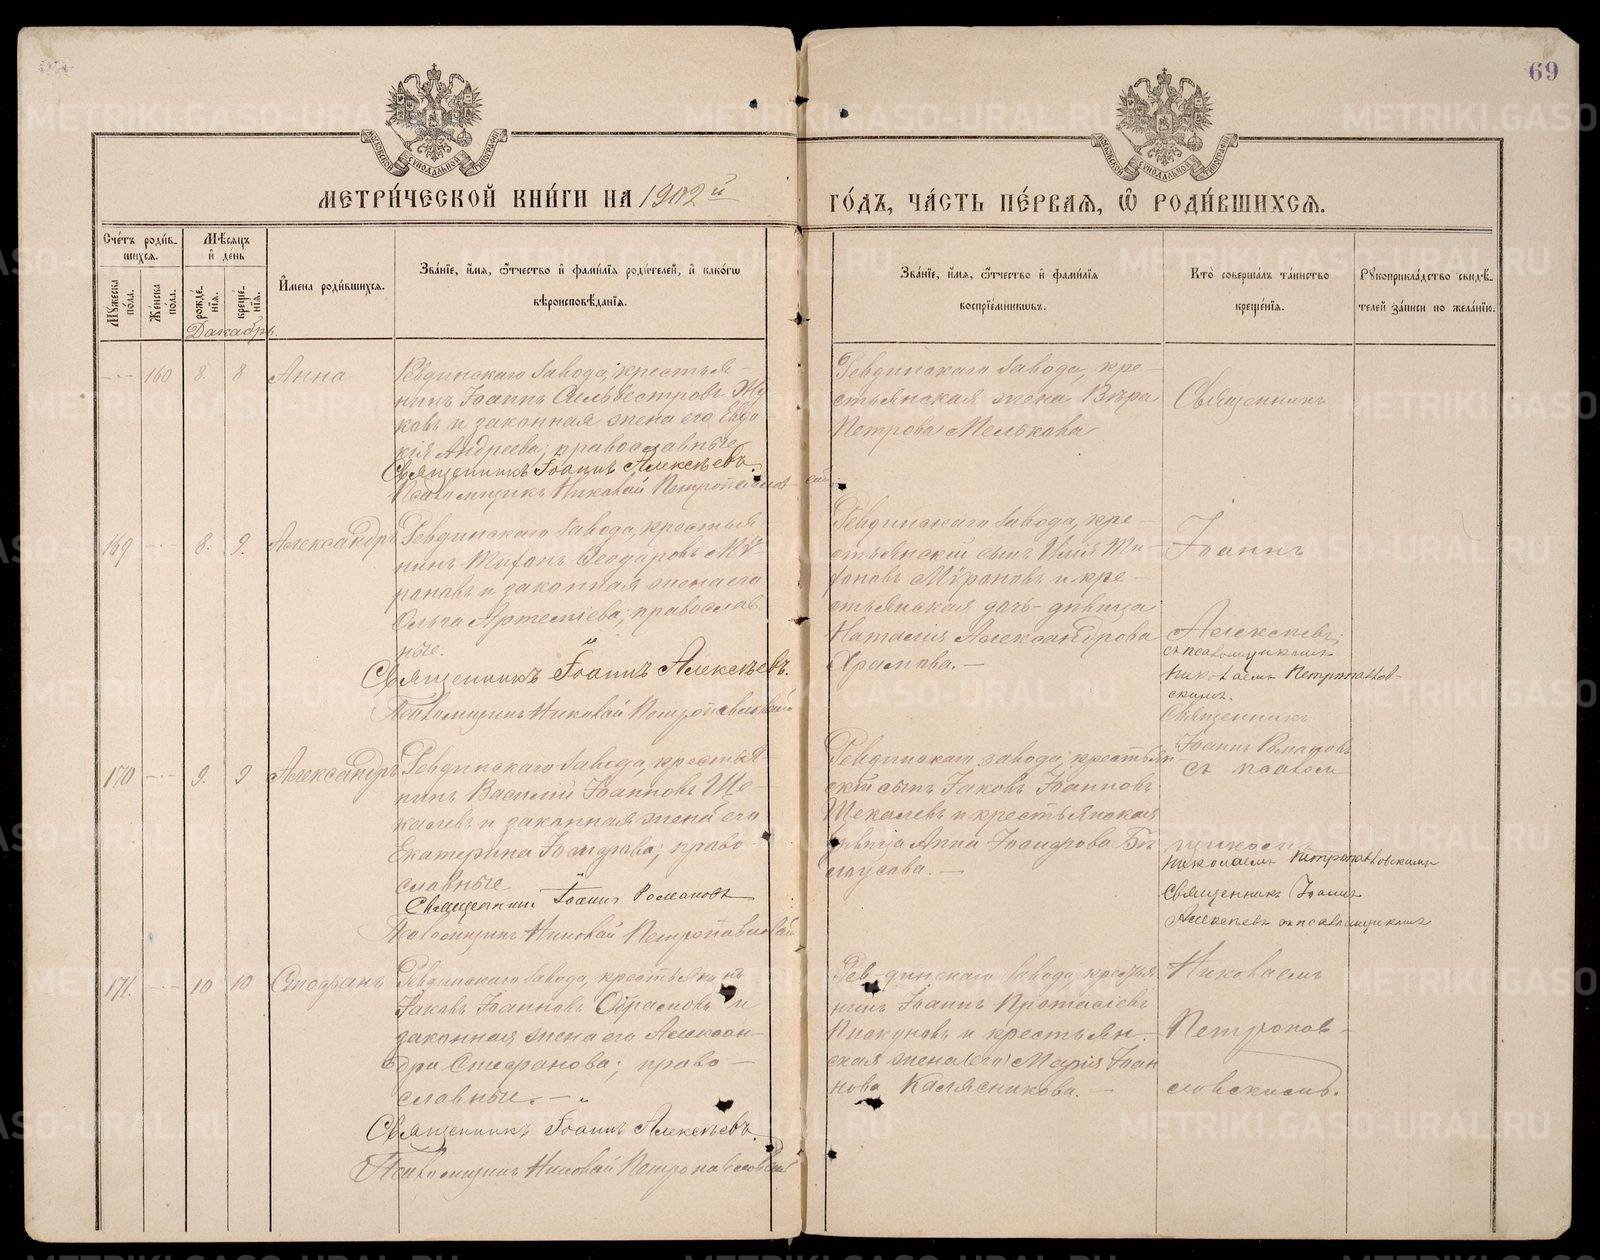 69
МЕТРИ́ЧЕСКОЙ КНИ́ГИ НА 1902 й
ГО́ДЪ, ЧА́СТЬ ПЕ́РВАЯ, Ѽ РОДИ́ВШИХСЯ.
Счетъ роди́вшихся.
Мꙋжеска по́ла.
Же́нска по́ла.
Мѣсяцъ и҆ день
рожде́нїѧ.
креще́нїѧ.
И҆мена роди́вшихся.
Зва́нїе, и҆́мѧ, ѻ҆́тчество и҆ фами́лїѧ роди́телей, и҆ како́гѡ
вѣроисповѣ́данїѧ.
Зва́нїе, и҆́мѧ, ѻ҆́тчество и҆ фами́лїѧ
воспрїе́мникѡвъ.
Кто̀ соверша́лъ та́инство
креще́нїѧ.
Рꙋкоприкла́дство свидѣ́-
телей за́писи по жела́нїю.
Декабрь.
160 8. 8 Анна
Ревдинскаго завода, крестья-
нинъ Іоаннъ Сильвестровъ Жу
ковъ и законная жена его Евдо
кія Андреева; православные
Священникъ Іоаннъ Алексѣевъ.
Псаломщикъ Николай Петропавловскій
Ревдинскаго завода, кре-
стьянская жена Вѣра
Петрова Мелькова
Священникъ
169 8. 9. Александръ
Ревдинскаго завода, крестья-
нинъ Тихонъ Ѳеодоровъ
и законная жена его
Ольга Артемьева; православ
ные.
Священникъ Іоаннъ Алексѣевъ.
Псаломщикъ Николай Петропавловскій
Ревдинскаго завода, кре-
стьянскій сынъ Илія Ти-
хоновъ и кре-
стьянская дочь-дѣвица
Наталія Александрова
Храмова.-
Іоаннъ
Алексѣевъ,
съ псаломщикомъ
Николаемъ Петропавлов-
скимъ.
170 9. 9 Александръ
Ревдинскаго завода, крестья-
нинъ Василій Іоанновъ Ще-
калевъ и законная жена его
Екатерина право-
славные
Священникъ Іоаннъ Романовъ
Псаломщикъ Николай Петропавловскій
Ревдинскаго завода, крестьян-
скій сынъ Іаковъ Іоанновъ
Щекалевъ и крестьянская
дѣвица Анна Бѣ
лоусова.-
Священникъ
Іоаннъ Романовъ
съ псалом
щикомъ
Николаемъ Петропавловскимъ
171. 10 10 Стефанъ
Ревдинскаго завода, крестьянинъ
Іаковъ Іоанновъ и
законная жена его Алексан
дра Стефанова; право-
славные.-
Священникъ Іоаннъ Алексѣевъ.
Псаломщикъ Николай Петропавловскій
Ревдинскаго завода крестья
нинъ Іоаннъ Протасіевъ
и крестьян.
ская жена (его) Марія Іоан
нова Калясникова.-
Священникъ Іоаннъ
Алексѣевъ съ псаломщикомъ
Николаемъ
Петропав-
ловскимъ.
METRIKI.GASO-URAL.RU